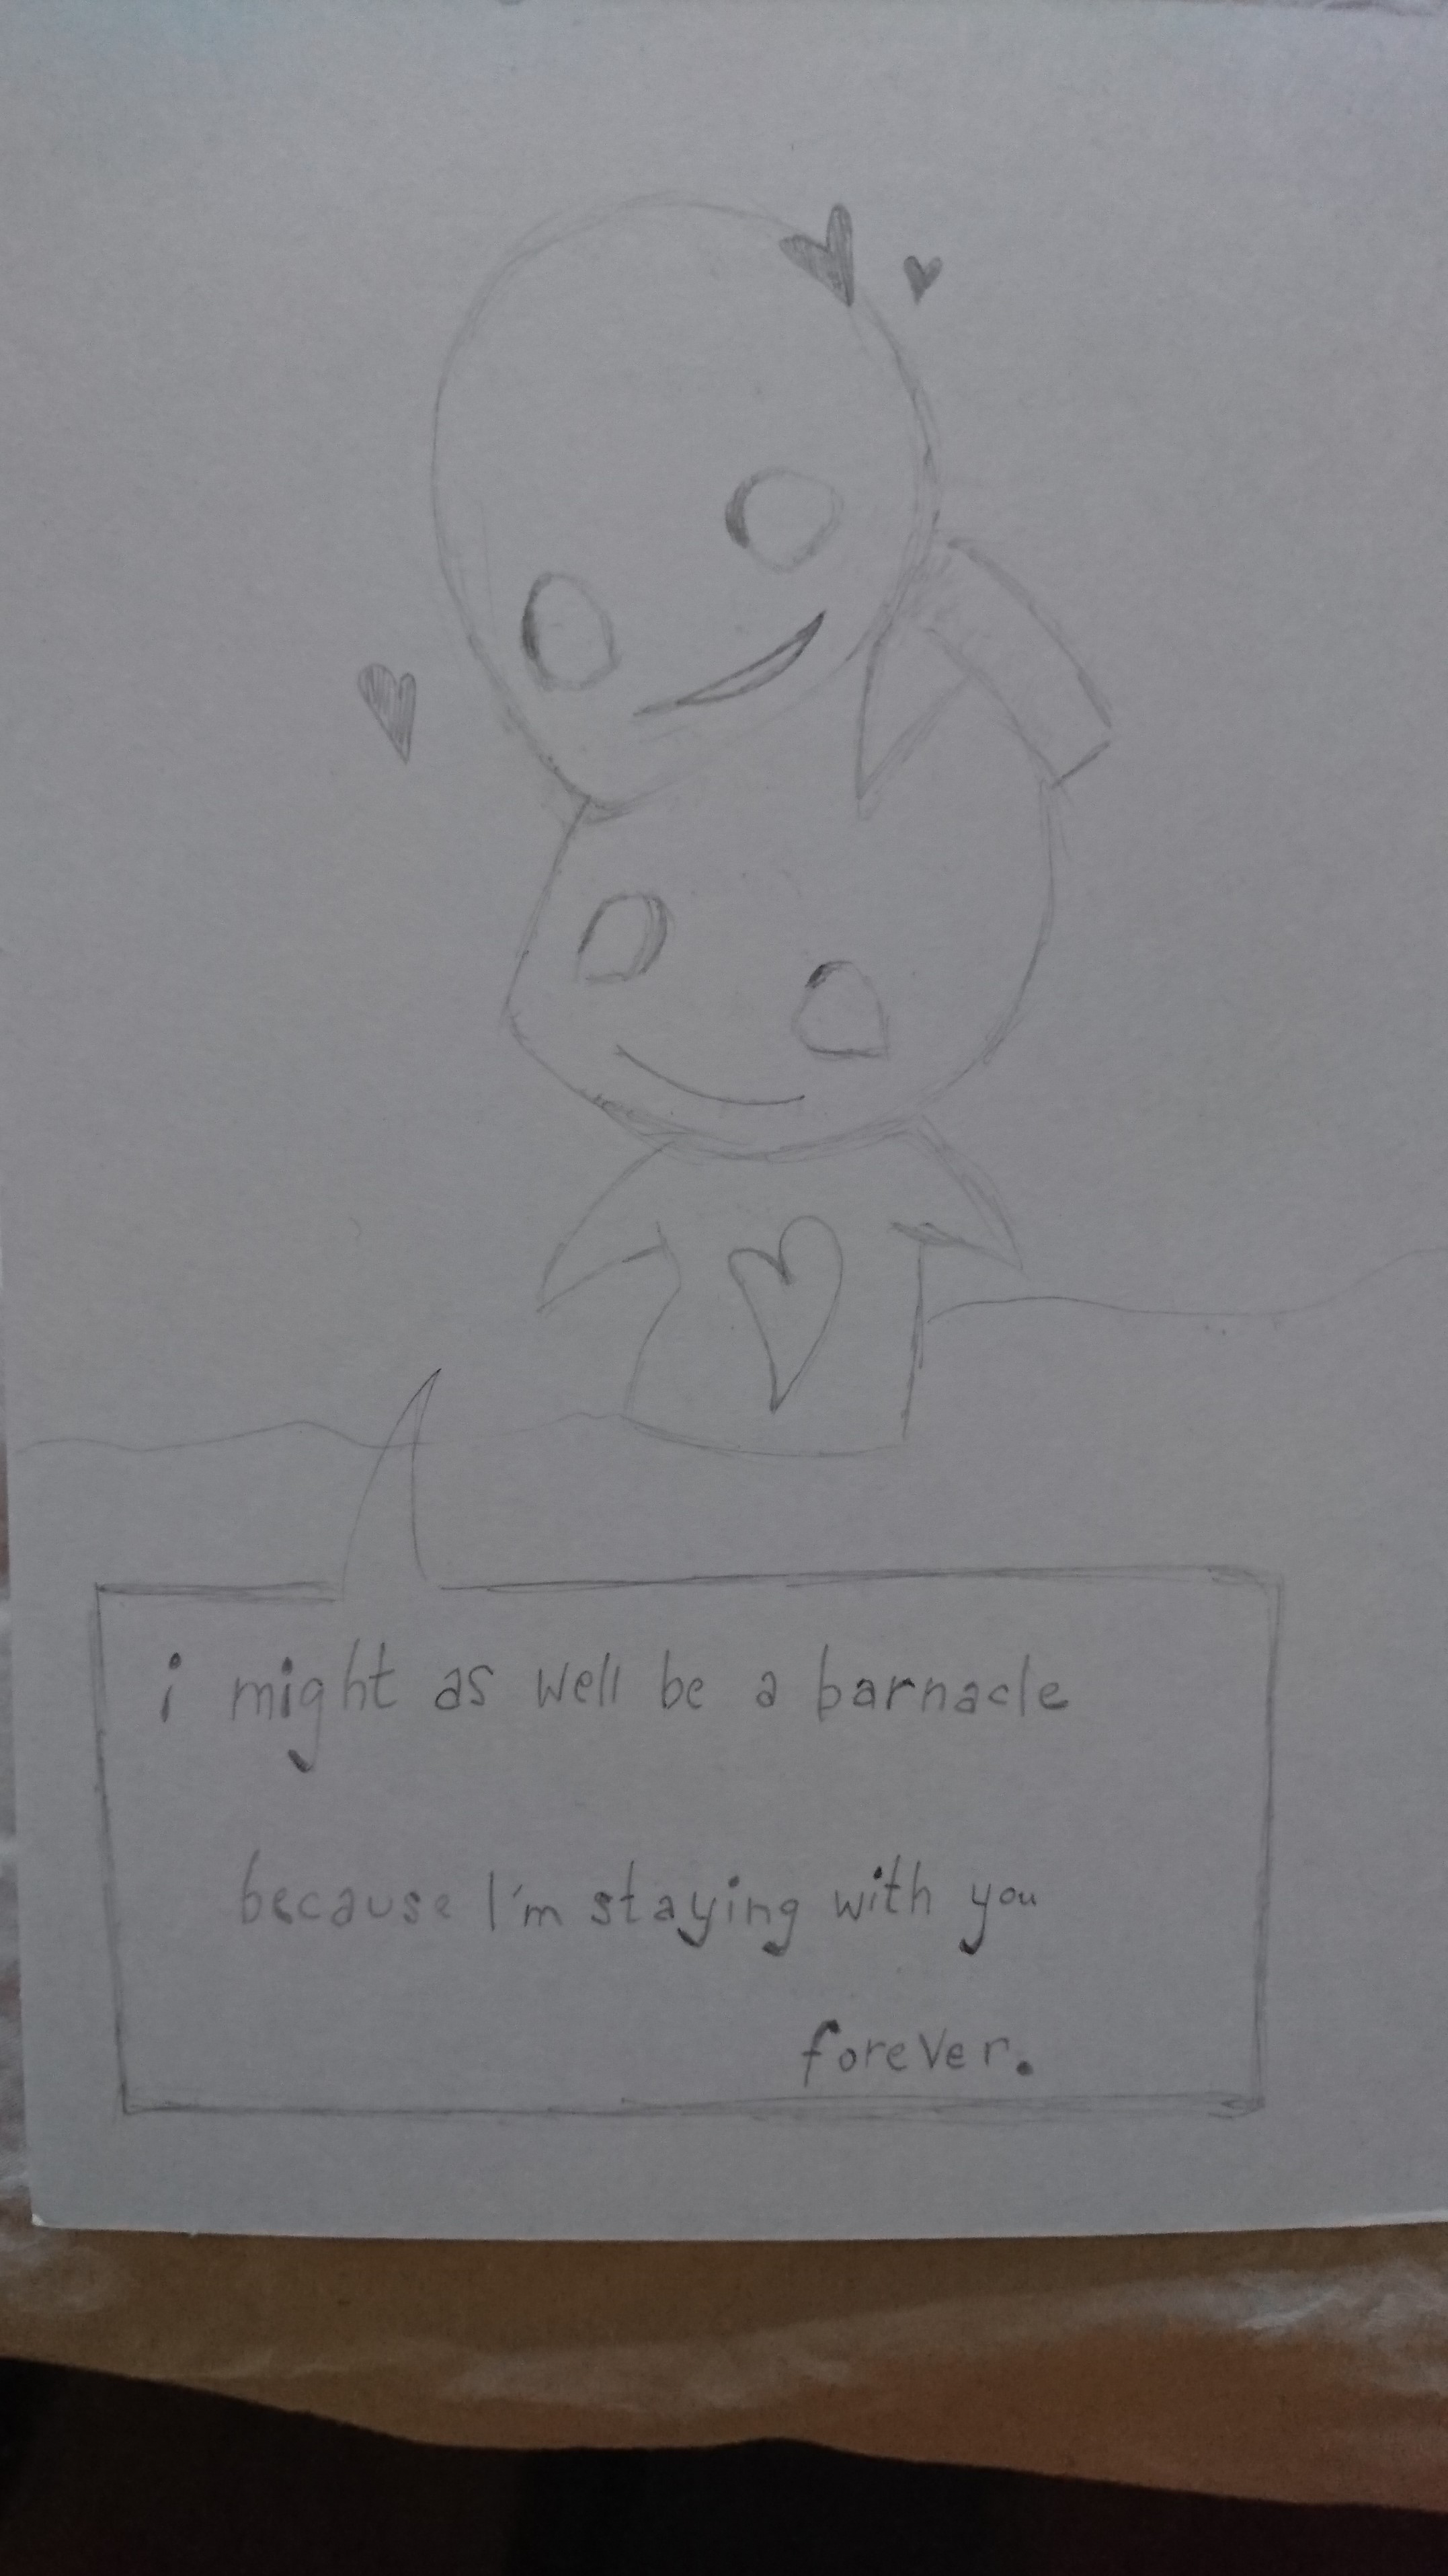 i might as well be a barnacle
because I'm staying with you
forever.